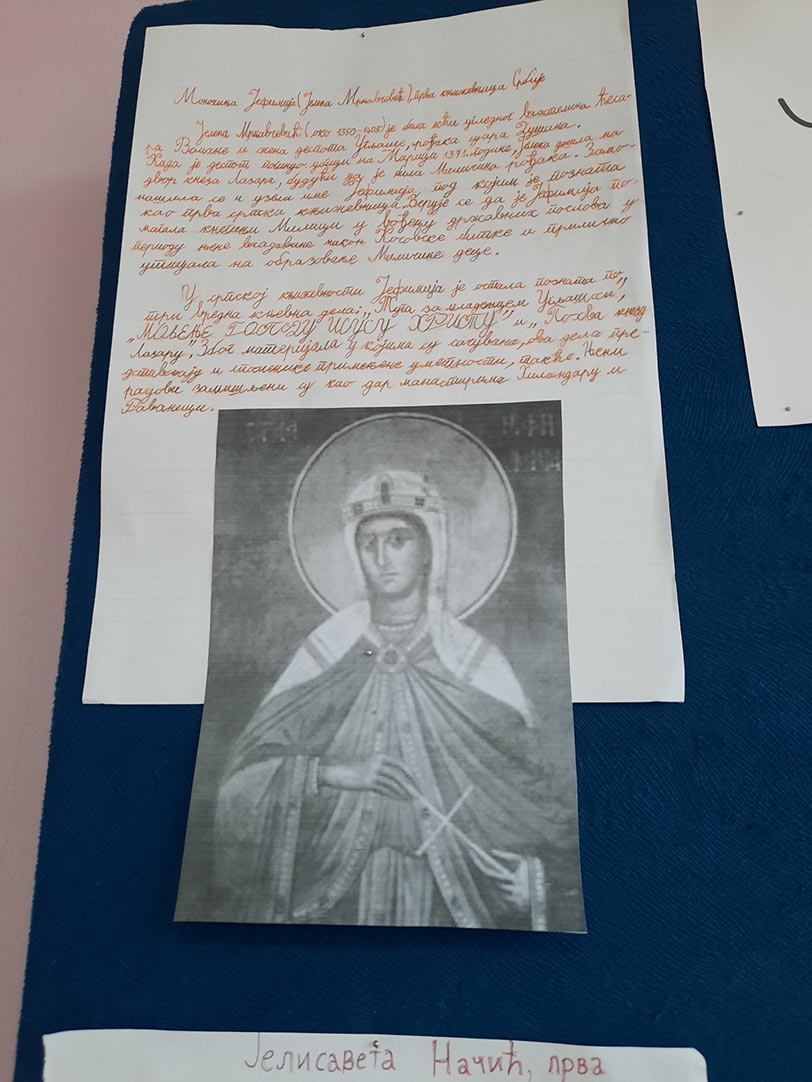 Монахиња Јефимија (Јелена Мрњавчевић) прва књижевница Србије
Јелена Мрњавчевић (око 1350-1405) је била кћи угледног властелина ћеса-
ра Војхне и жена деспота Угљеше, рођака цара Душана.
Када је деспот погинуо у бици на Марици 1371. године, Јелена дошла на
двор кнеза Лазара, будући да је била Миличина рођака. Замо-
нашила се и узела име Јефимија под којим је позната
као прва српска књижевница. Верује се да је Јефимија по-
магала кнегињи Милици у вођењу државних послова у
периоду њене владавине након Косовске битке и прилично
утицала на образовање Миличине деце.
У српској књижевности Јефимија је остала позната по
три вредна књевна дела: „Туга за младенцем Угљешом",
„МОЉЕЊЕ ГОСПОДУ ИСУСУ ХРИСТУ" и „Похвала кнезу
Лазару". Због материјала у којима су сачувана, ова дела пре-
дстављају и споменике примењене уметности, такође. Њени
радови замишљени су као дар манастирима Хиландару и
Раваници.
Јелисавета Начић, прва